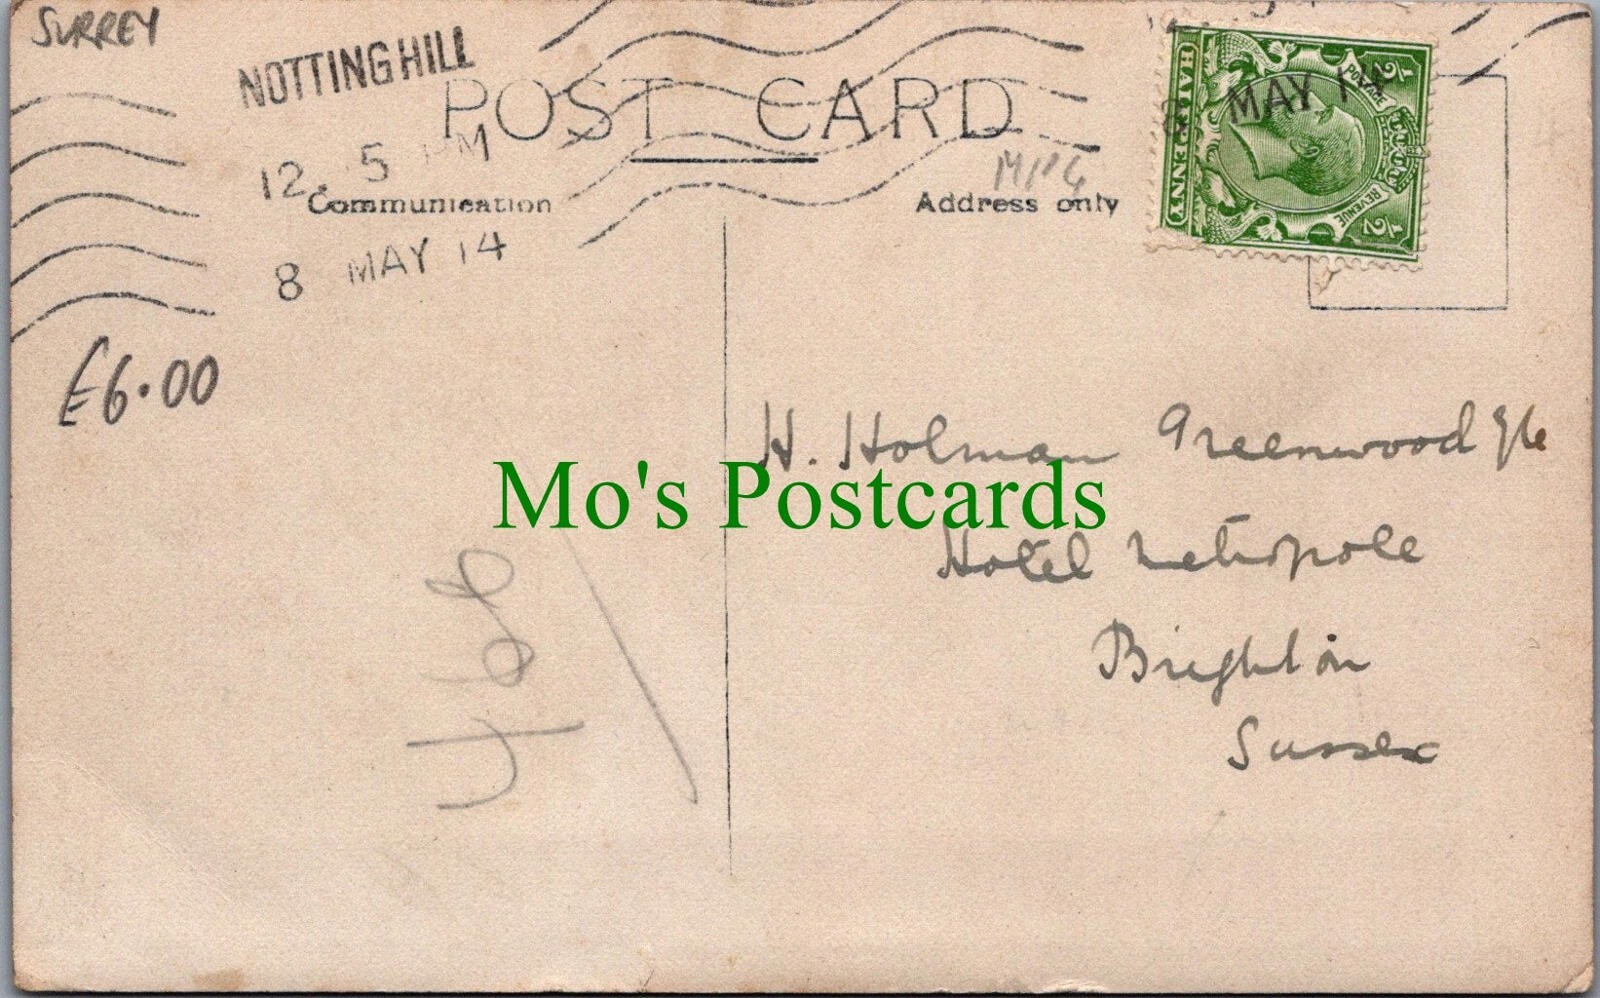 SURREY
NOTTING HILL
12. 5 PM
8 MAY 14
POST CARD
Communication
Address only
MAY 14
HALFPENNY
POSTAGE
REVENUE
1/2
1/2
£6.00
H. Holman Greenwood
Hotel Metropole
Brighton
Sussex
Mo's Postcards